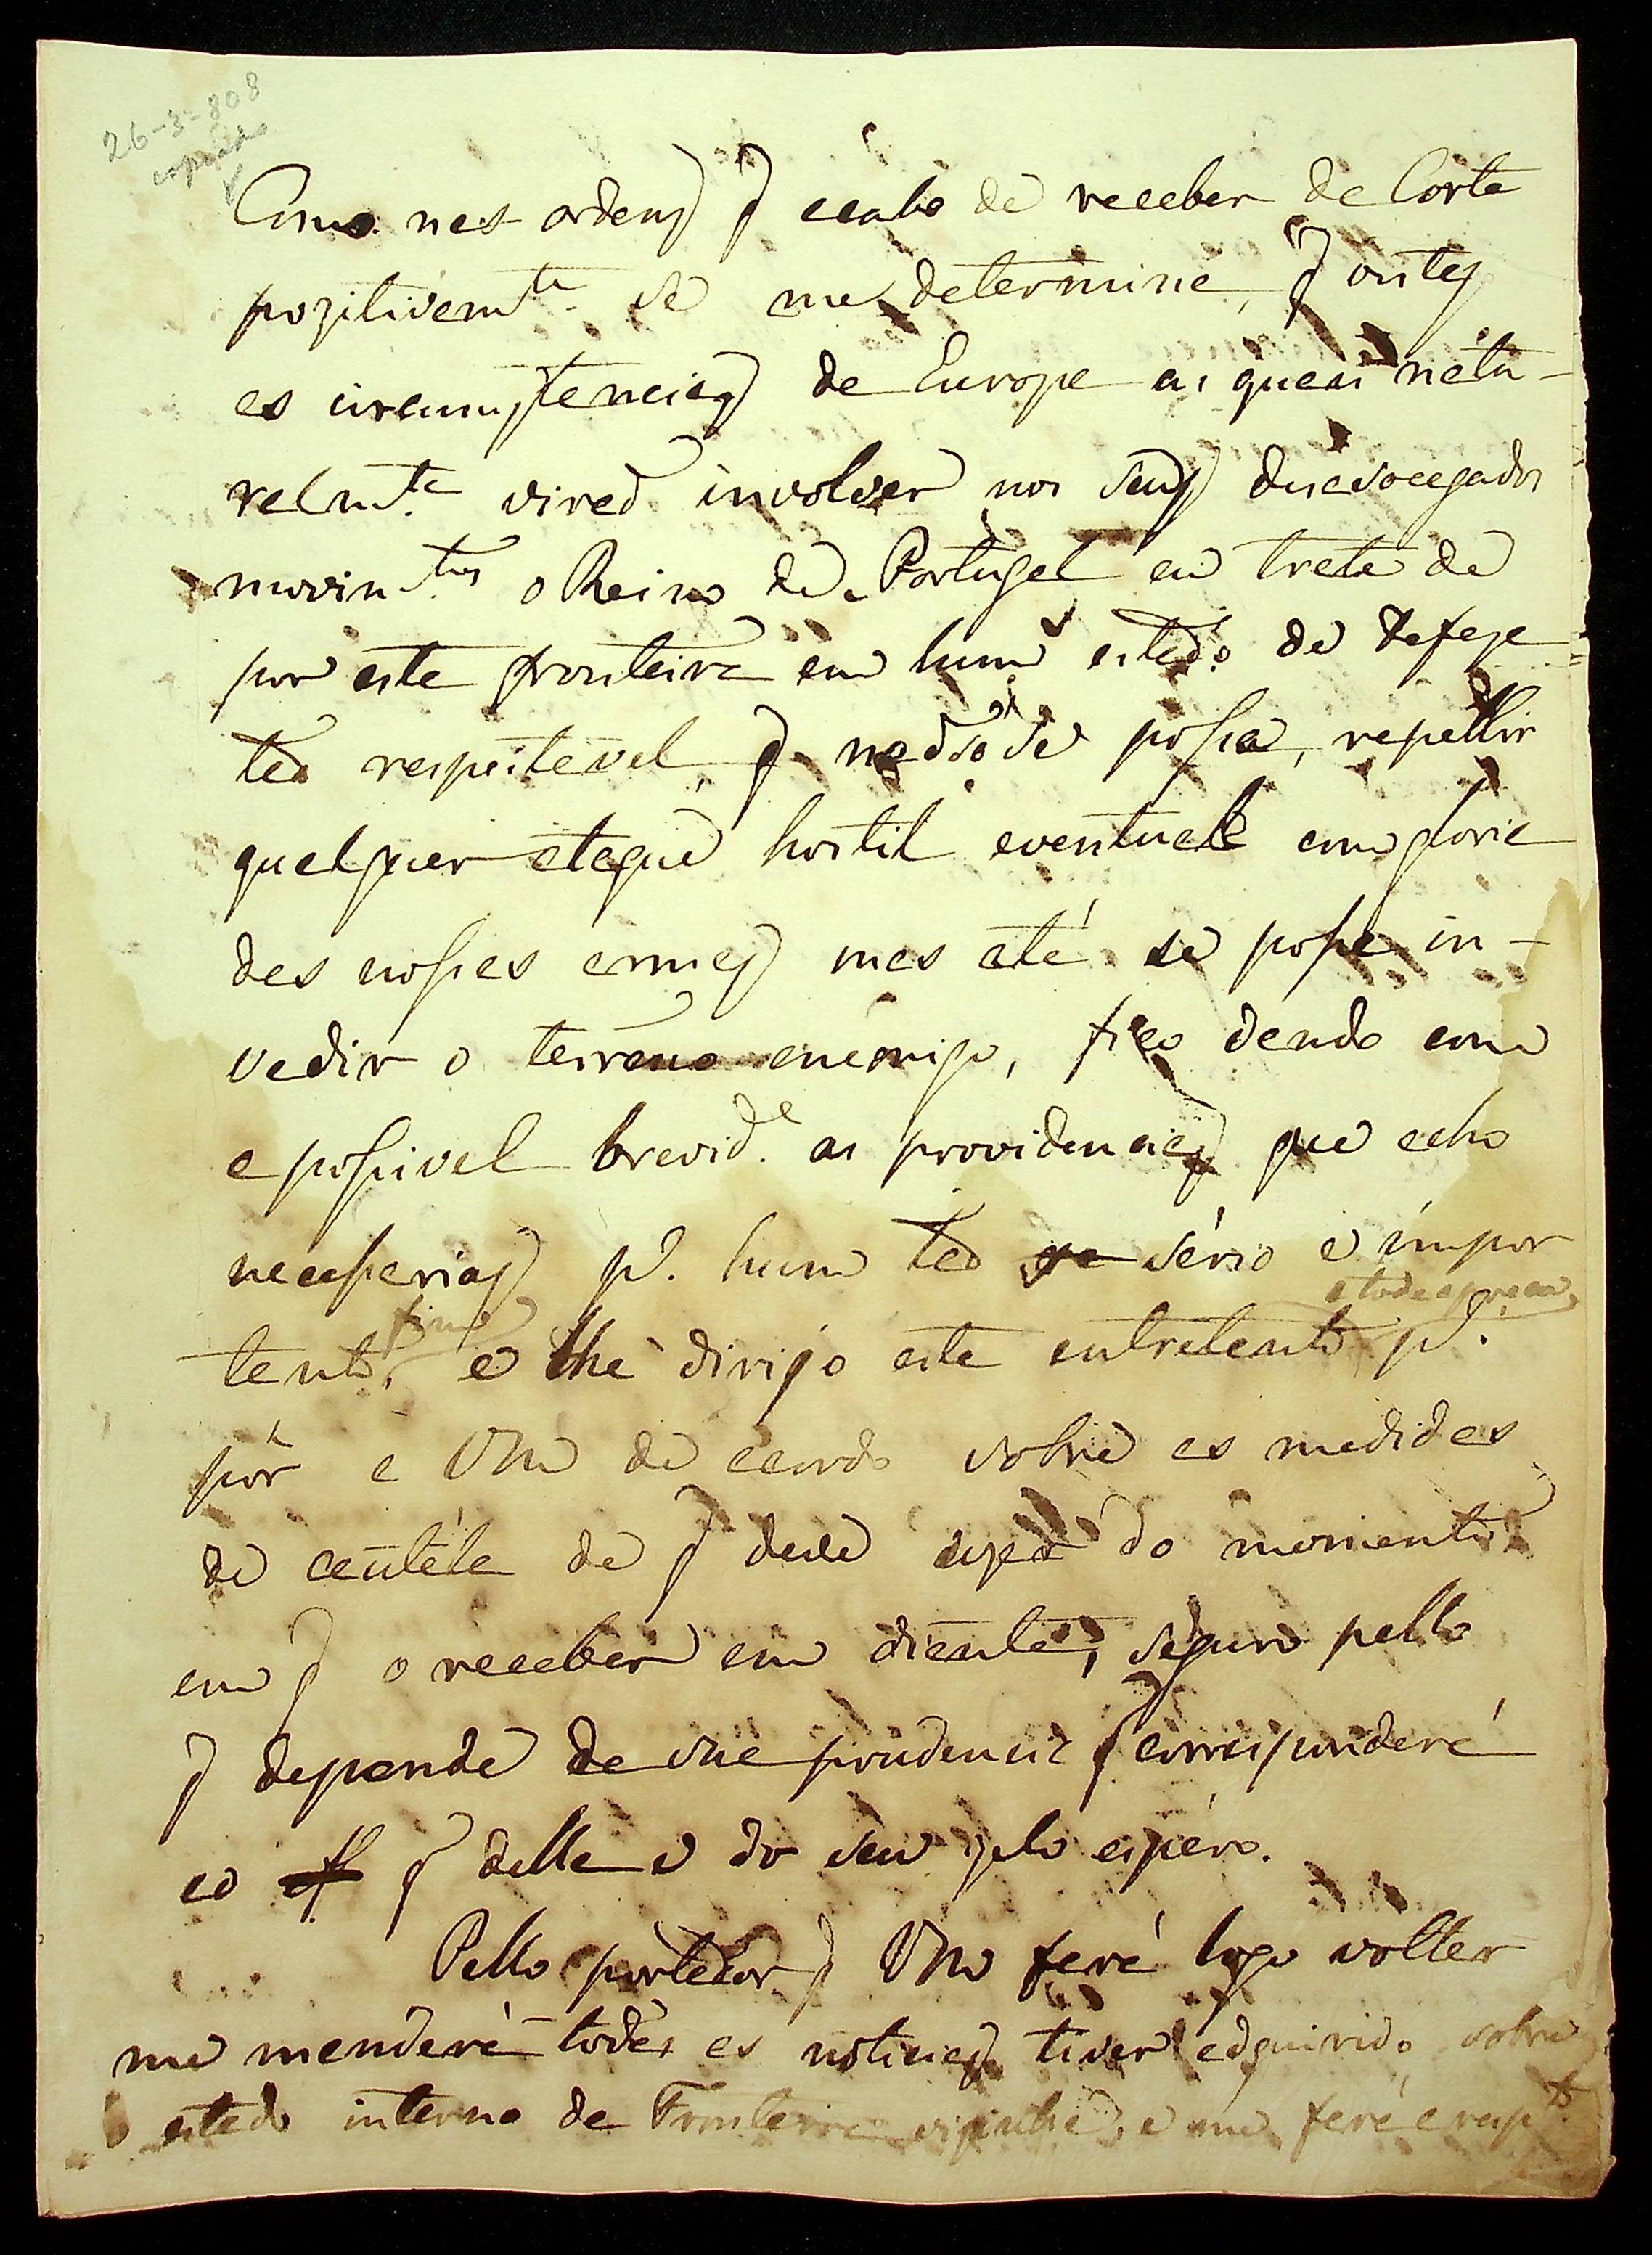 26-3-808
copiado
Como nas ordens q̃ acabo de receber da Corte
pozitivam.te se me determine, q̃ vistas
as circumstancias da Europa as quaes natu-
ralm.te viraõ involver nos seus desasocegados
movim.tos o Reino de Portugal eu trate de
por esta fronteira em hum estado de defeza
taõ respeitavel, q̃ naõ só se possa, repellir
qualquer ataque hostil eventual com gloria
das nossas armas mas até se possa in-
vadir o terreno inemigo, fico dando com
a possivel brevid.e as providencias que acho
necessarias p.a hum taõ sério e impor
a toda a pressa
tante fim, e lhe dirijo este entretanto p.a
pôr a Vm de acordo sobre as medidas
de cautéla de q̃ deve uzar do momento
em q̃ o receber em diante, seguro pello
q̃ depende de sua prudencia q̃ corresponderá
ao q̃ della e do seu zelo espéro.
Pello portador q̃ Vm fará logo voltar
me mandará todas as noticias tiver adquirido sobre
o estado interno da Fronteira vizinha, e me fará a resp.to